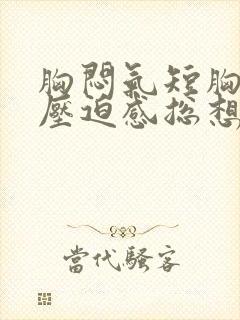 胸悶氣短胸
壓迫感總想
當代騷客